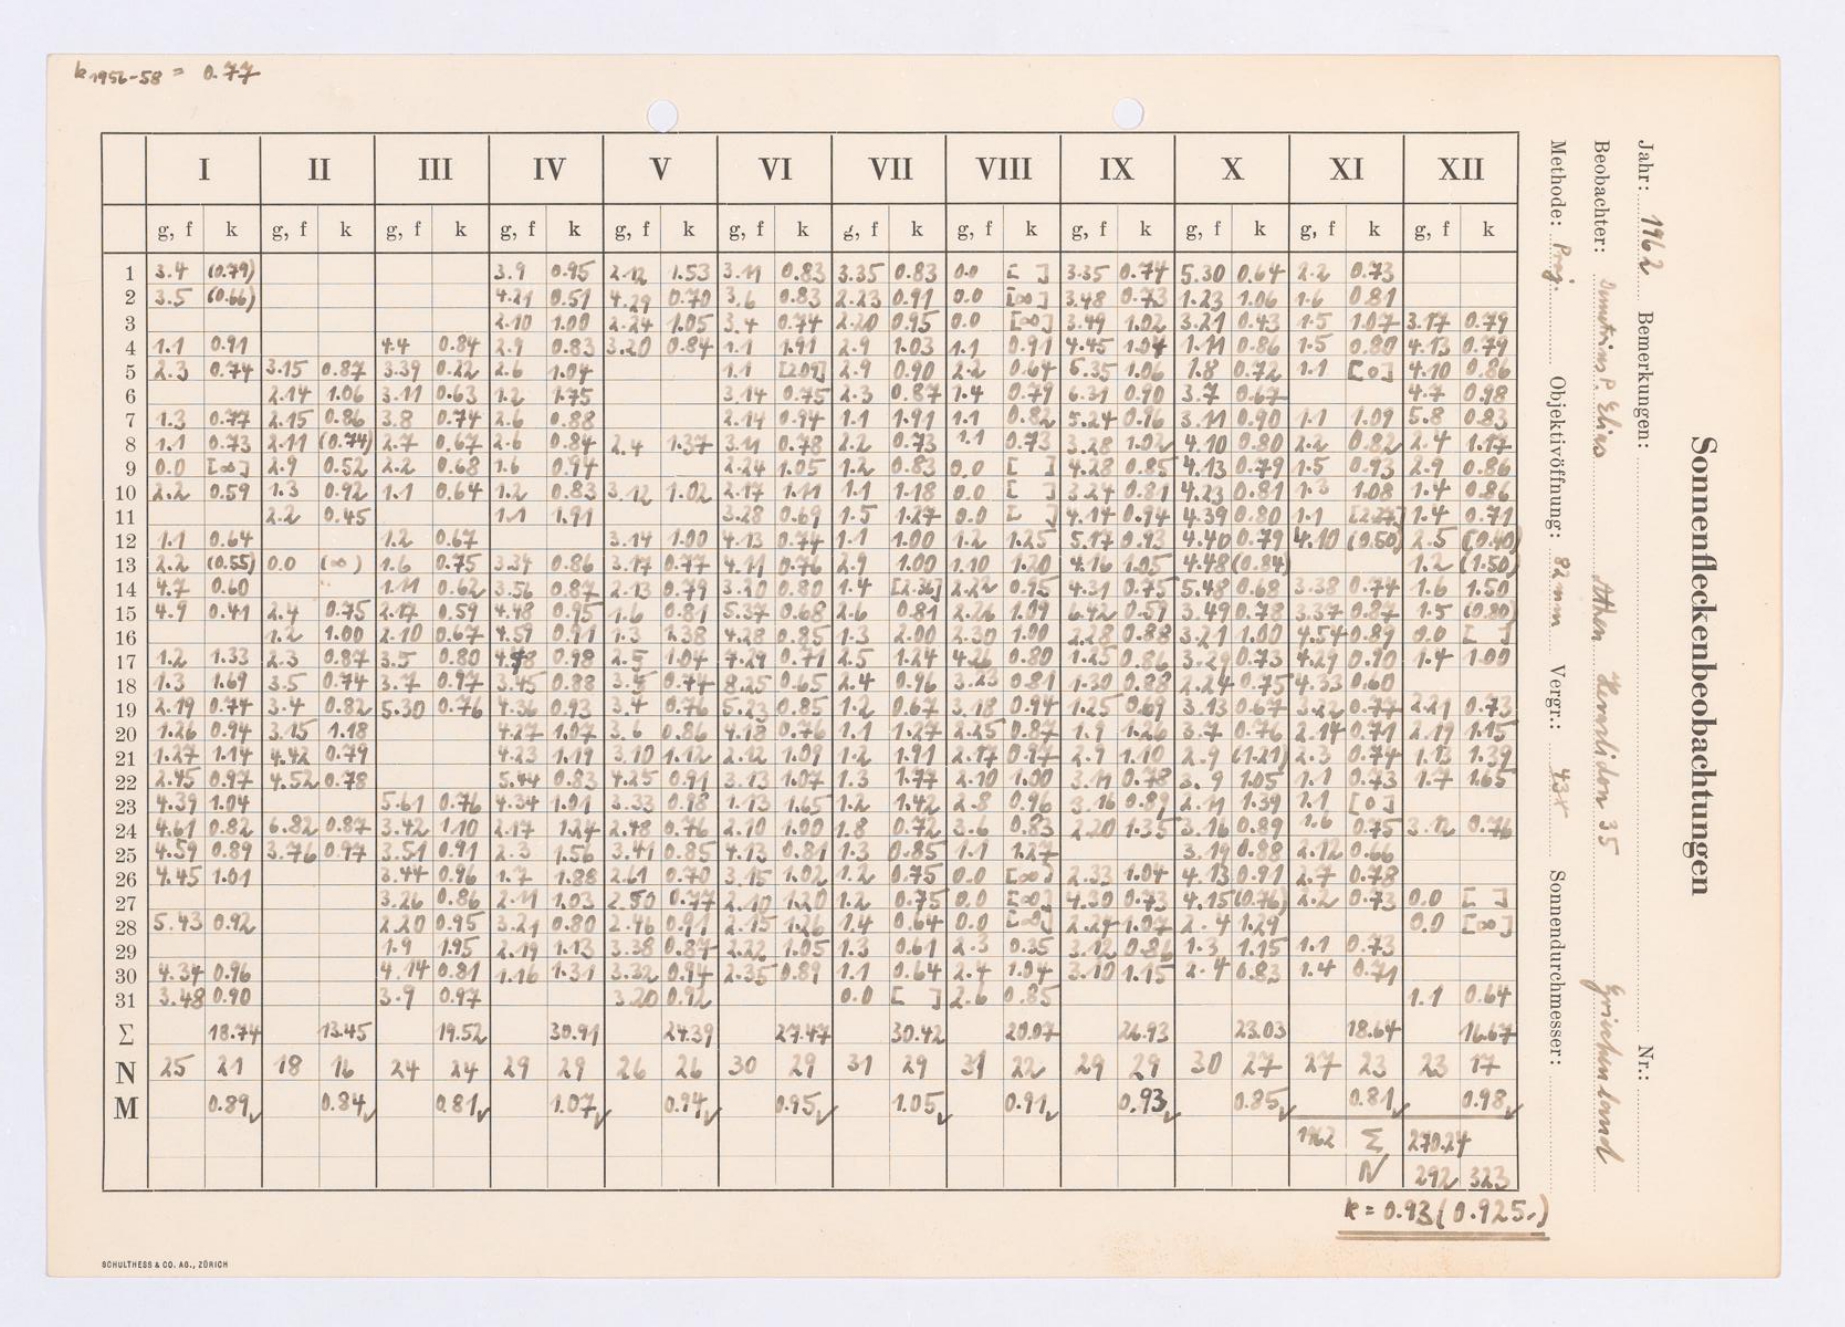 k 1956-58 = 0.77
I II III IV V VI VII VIII IX X XI XII
g, f k g, f k g, f k g, f k g, f k g, f k g, f k g, f k g, f k g, f k g, f k g, f k
1 3.4 (0.79) 3.9 0.95 2.12 1.53 3.11 0.83 3.35 0.83 0.0 [ ] 3.35 0.74 5.30 0.64 2.2 0.73
2 3.5 (0.66) 4.21 0.51 4.29 0.70 3.6 0.83 2.23 0.91 0.0 [∞] 3.48 0.73 1.23 1.06 1.6 0.81
3 2.10 1.00 2.24 1.05 3.4 0.74 2.20 0.95 0.0 [∞] 3.49 1.02 3.21 0.43 1.5 1.07 3.17 0.79
4 1.1 0.91 4.4 0.84 2.9 0.83 3.20 0.84 1.1 1.91 2.9 1.03 1.1 0.91 4.45 1.04 1.11 0.86 1.5 0.80 4.13 0.79
5 2.3 0.74 3.15 0.87 3.39 0.22 2.6 1.04 1.1 2.9 0.90 2.2 0.64 5.35 1.06 1.8 0.72 1.1 [0] 4.10 0.86
6 2.14 1.06 3.11 0.63 1.2 1.75 3.14 0.75 2.3 0.87 1.4 0.79 6.31 0.90 3.7 0.67 4.7 0.98
7 1.3 0.77 2.15 0.86 3.8 0.74 2.6 0.88 2.14 0.94 1.1 1.91 1.1 0.82 5.24 0.96 3.11 0.90 1.1 1.09 5.8 0.83
8 1.1 0.73 2.11 (0.74) 2.7 0.67 2.6 0.84 2.4 1.37 3.11 0.78 2.2 0.73 1.1 0.73 3.28 1.02 4.10 0.80 2.2 0.82 2.4 1.17
9 0.0 [∞] 2.9 0.52 2.2 0.68 1.6 0.94 2.24 1.05 1.2 0.83 0.0 [ ] 4.28 0.85 4.13 0.79 1.5 0.93 2.9 0.86
10 2.2 0.59 1.3 0.92 1.1 0.64 1.2 0.83 3.12 1.02 2.17 1.11 1.1 1.18 0.0 [ ] 3.24 0.81 4.23 0.81 1.3 1.08 1.4 0.86
11 2.2 0.45 1.1 1.91 3.28 0.69 1.5 1.27 0.0 [ ] 4.14 0.94 4.39 0.80 1.1 [2.27] 1.4 0.71
12 1.1 0.64 1.2 0.67 3.14 1.00 4.13 0.74 1.1 1.00 1.2 1.25 5.17 0.93 4.40 0.79 4.10 (0.50) 2.5 (0.40)
13 2.2 (0.55) 0.0 (∞) 1.6 0.75 3.34 0.86 3.17 0.77 4.11 0.76 2.9 1.00 1.10 1.20 4.16 1.05 4.48 (0.84) 1.2 (1.50)
14 4.7 0.60 1.11 0.62 3.56 0.87 2.13 0.79 3.20 0.80 1.4 [2.36] 2.22 0.95 4.31 0.75 5.48 0.68 3.38 0.74 1.6 1.50
15 4.9 0.41 2.4 0.75 2.17 0.59 4.48 0.95 1.6 0.81 5.37 0.68 2.6 0.81 2.26 1.09 6.42 0.59 3.49 0.78 3.37 0.87 1.5 (0.80)
16 1.2 1.00 2.10 0.67 4.57 0.91 1.3 1.38 4.28 0.85 1.3 2.00 2.30 1.00 2.28 0.88 3.21 1.00 4.54 0.89 0.0 [ ]
17 1.2 1.33 2.3 0.87 3.5 0.80 0.98 2.5 1.04 7.29 0.71 2.5 1.24 4.26 0.80 1.25 0.86 3.29 0.73 4.29 0.90 1.4 1.00
18 1.3 1.69 3.5 0.74 3.7 0.97 3.45 0.88 0.74 8.25 0.65 2.4 0.96 3.23 0.81 1.30 0.88 2.24 0.75 4.33 0.60
19 2.19 0.74 3.4 0.82 5.30 0.76 4.36 0.93 3.4 0.76 5.23 0.85 1.2 0.67 3.18 0.94 1.25 0.69 3.13 0.67 3.22 0.77 2.21 0.73
20 1.26 0.94 3.15 1.18 4.27 1.07 3.6 0.86 4.18 0.76 1.1 1.27 2.25 0.87 1.9 1.26 3.7 0.76 2.14 0.71 2.19 1.15
21 1.27 1.14 4.42 0.79 4.23 1.19 3.10 1.12 2.12 1.09 1.2 1.91 2.17 0.97 2.9 1.10 2.9 (1.21) 2.3 0.74 1.13 1.39
22 2.45 0.97 4.52 0.78 5.44 0.83 4.25 0.91 3.13 1.07 1.3 1.77 2.10 1.00 3.11 0.78 3.9 1.05 1.1 0.73 1.7 1.65
23 4.39 1.04 5.61 0.76 4.34 1.01 3.33 0.98 1.13 1.65 1.2 1.42 2.8 0.96 3.16 0.89 2.11 1.39 1.1 [0]
24 4.61 0.82 6.82 0.87 3.42 1.10 2.17 1.24 2.48 0.76 2.10 1.00 1.8 0.72 3.6 0.83 2.20 1.35 3.16 0.89 1.6 0.75 3.12 0.76
25 4.59 0.89 3.76 0.97 3.51 0.91 2.3 1.56 3.41 0.85 4.13 0.81 1.3 0.85 1.1 1.27 3.19 0.88 2.12 0.66
26 4.45 1.01 3.44 0.96 1.7 1.88 2.61 0.70 3.15 1.02 1.2 0.75 0.0 [∞] 2.33 1.04 4.13 0.91 2.7 0.78
27 3.26 0.86 2.11 1.03 2.50 0.77 2.10 1.20 1.2 0.75 0.0 [∞] 4.30 0.73 4.15 (0.76) 2.2 0.73 0.0 [ ]
28 5.43 0.92 2.20 0.95 3.21 0.80 2.46 0.91 2.15 1.26 1.4 0.64 0.0 [∞] 2.24 1.07 2.4 1.29 0.0 [∞]
29 1.9 1.95 2.19 1.13 3.38 0.87 2.22 1.05 1.3 0.61 2.3 0.35 3.12 0.86 1.3 1.15 1.1 0.73
30 4.34 0.96 4.14 0.81 1.16 1.31 3.32 0.94 2.35 0.89 1.1 0.64 2.4 1.04 3.10 1.15 2.4 0.83 1.4 0.71
31 3.48 0.90 3.9 0.97 3.20 0.92 0.0 [ ] 2.6 0.85 1.1 0.64
Σ 18.74 13.45 19.52 30.91 24.39 27.47 30.42 20.07 26.93 23.03 18.64 16.67
N 25 21 18 16 24 24 29 29 26 26 30 29 31 29 31 22 29 29 30 27 27 23 23 17
M 0.89✓ 0.84✓ 0.81✓ 1.07✓ 0.94✓ 0.95✓ 1.05✓ 0.91✓ 0.93✓ 0.85✓ 0.81✓ 0.98✓
1962 Σ 270.24
N 292 323
k = 0.93 (0.925)
SCHULTHESS & CO. AG., ZÜRICH
Sonnenfleckenbeobachtungen
Jahr: 1962 Bemerkungen: Nr.:
Beobachter: P. Elias Athen 35 Griechenland
Methode: Proj. Objektivöffnung: 82 mm Vergr.: 43x Sonnendurchmesser: